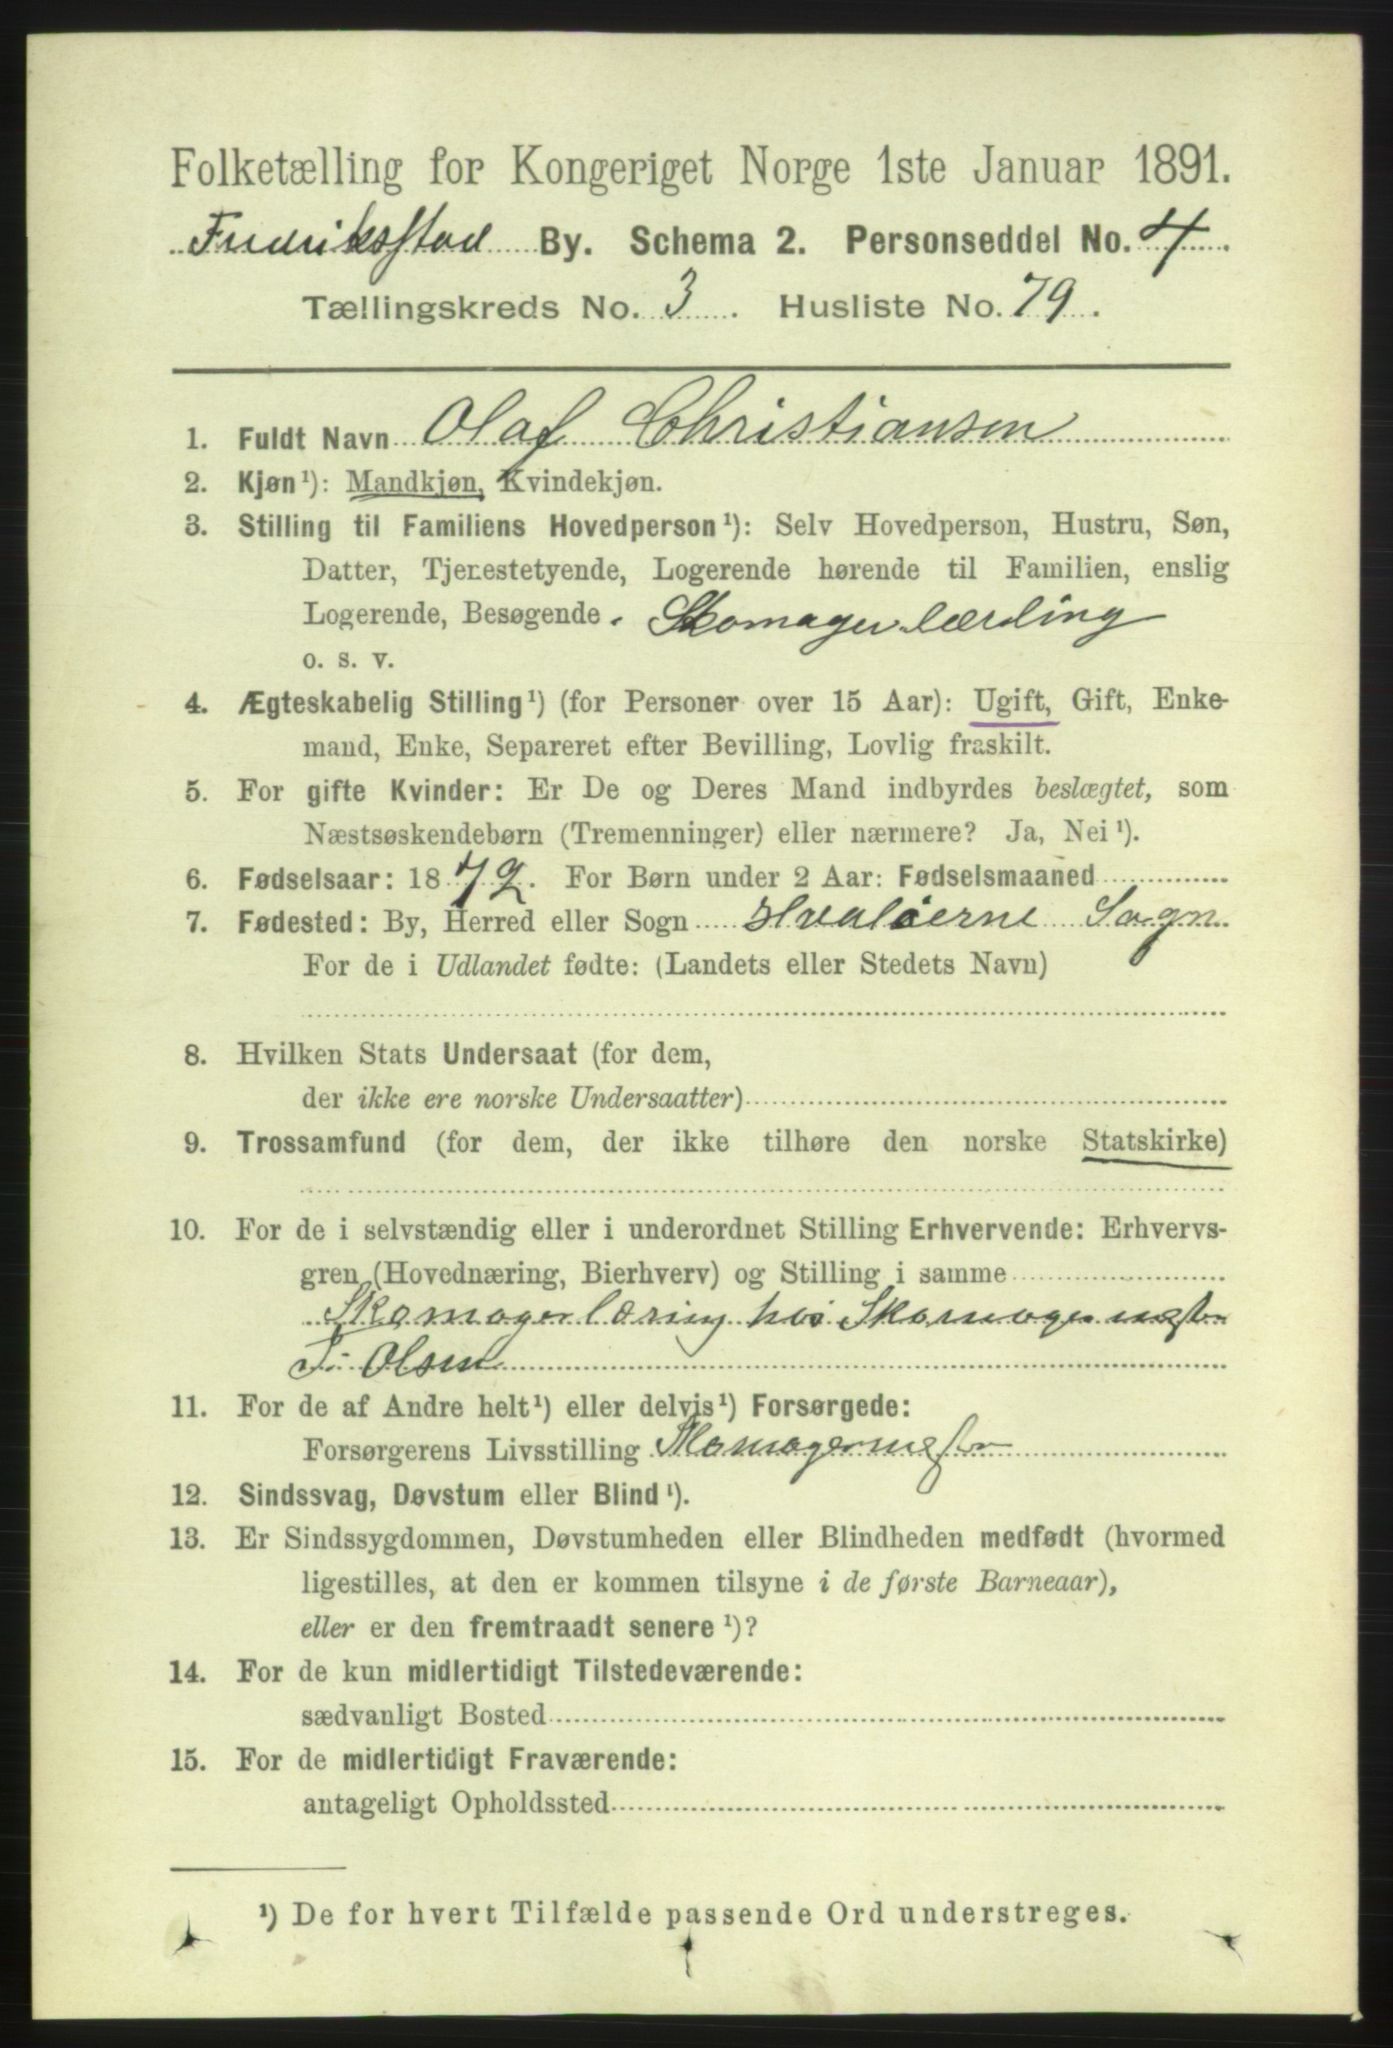 Folketælling for Kongeriget Norge 1ste Januar 1891.
Fredriksstad By. Schema 2. Personseddel No. 4.
Tællingskreds No. 3. Husliste No. 79.
1. Fuldt Navn Olaf Christiansen
2. Kjøn¹): Mandkjøn, Kvindekjøn.
3. Stilling til Familiens Hovedperson¹): Selv Hovedperson, Hustru, Søn,
Datter, Tjenestetyende, Logerende hørende til Familien, enslig
Logerende, Besøgende. Skomagerlærling
o. s. v.
4. Ægteskabelig Stilling¹) (for Personer over 15 Aar): Ugift, Gift, Enke-
mand, Enke, Separeret efter Bevilling, Lovlig fraskilt.
5. For gifte Kvinder: Er De og Deres Mand indbyrdes beslægtet, som
Næstsøskendebørn (Tremenninger) eller nærmere? Ja, Nei¹).
6. Fødselsaar: 1872. For Børn under 2 Aar: Fødselsmaaned
7. Fødested: By, Herred eller Sogn Hvaløerne Sogn
For de i Udlandet fødte: (Landets eller Stedets Navn)
8. Hvilken Stats Undersaat (for dem,
der ikke ere norske Undersaatter)
9. Trossamfund (for dem, der ikke tilhøre den norske Statskirke)
10. For de i selvstændig eller i underordnet Stilling Erhvervende: Erhvervs-
gren (Hovednæring, Bierhverv) og Stilling i samme
Skomagerlæring hos Skomagermester
Olsen
11. For de af Andre helt¹) eller delvis¹) Forsørgede:
Forsørgerens Livsstilling Skomagermester
12. Sindssvag, Døvstum eller Blind¹).
13. Er Sindssygdommen, Døvstumheden eller Blindheden medfødt (hvormed
ligestilles, at den er kommen tilsyne i de første Barneaar),
eller er den fremtraadt senere¹)?
14. For de kun midlertidigt Tilstedeværende:
sædvanligt Bosted
15. For de midlertidigt Fraværende:
antageligt Opholdssted
¹) De for hvert Tilfælde passende Ord understreges.